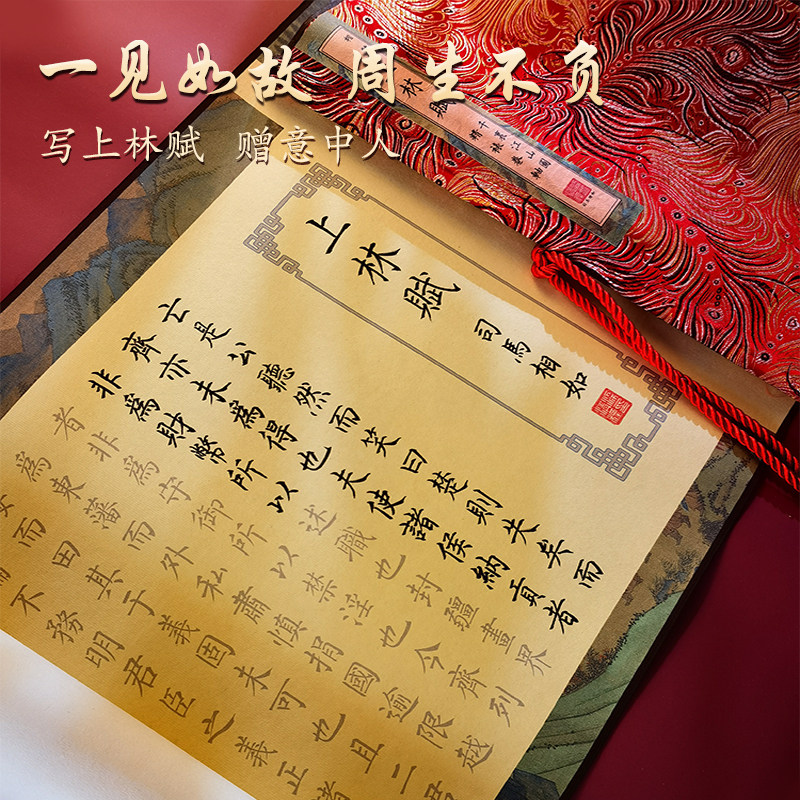 一见如故 周生不负
写上林赋 赠意中人
林賦
上林賦
司馬相如
亡是公聽然而笑曰楚則失矣而
齊亦未為得也夫使諸侯納貢者
非為財幣所以述職也封疆畫界
者非為守御所以禁淫也今齊列
為東藩而外私肅慎捐國逾限越
而田其于義固未可也且二
不務明君臣之義正